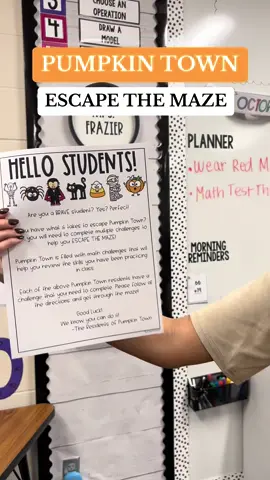 CHOOSE AN
OPERATION
DRAW A
MODEL
PUMPKIN TOWN
ESCAPE THE MAZE
FRAZIER
PLANNER
Wear Red M
Math Test Th
MORNING
REMINDERS
HELLO STUDENTS!
Are you a BRAVE student? Yes? Perfect!
you have what it takes to escape Pumpkin Town?
you will need to complete multiple challenges to
help you ESCAPE THE MAZE!
Pumpkin Town is filled with math challenges that will
help you review the skills you have been practicing
in class.
Each of the above Pumpkin Town residents have a
challenge that you need to complete. Please follow all
the directions and get through the maze!
Good Luck!
We know you can do it!
-The Residents of Pumpkin Town